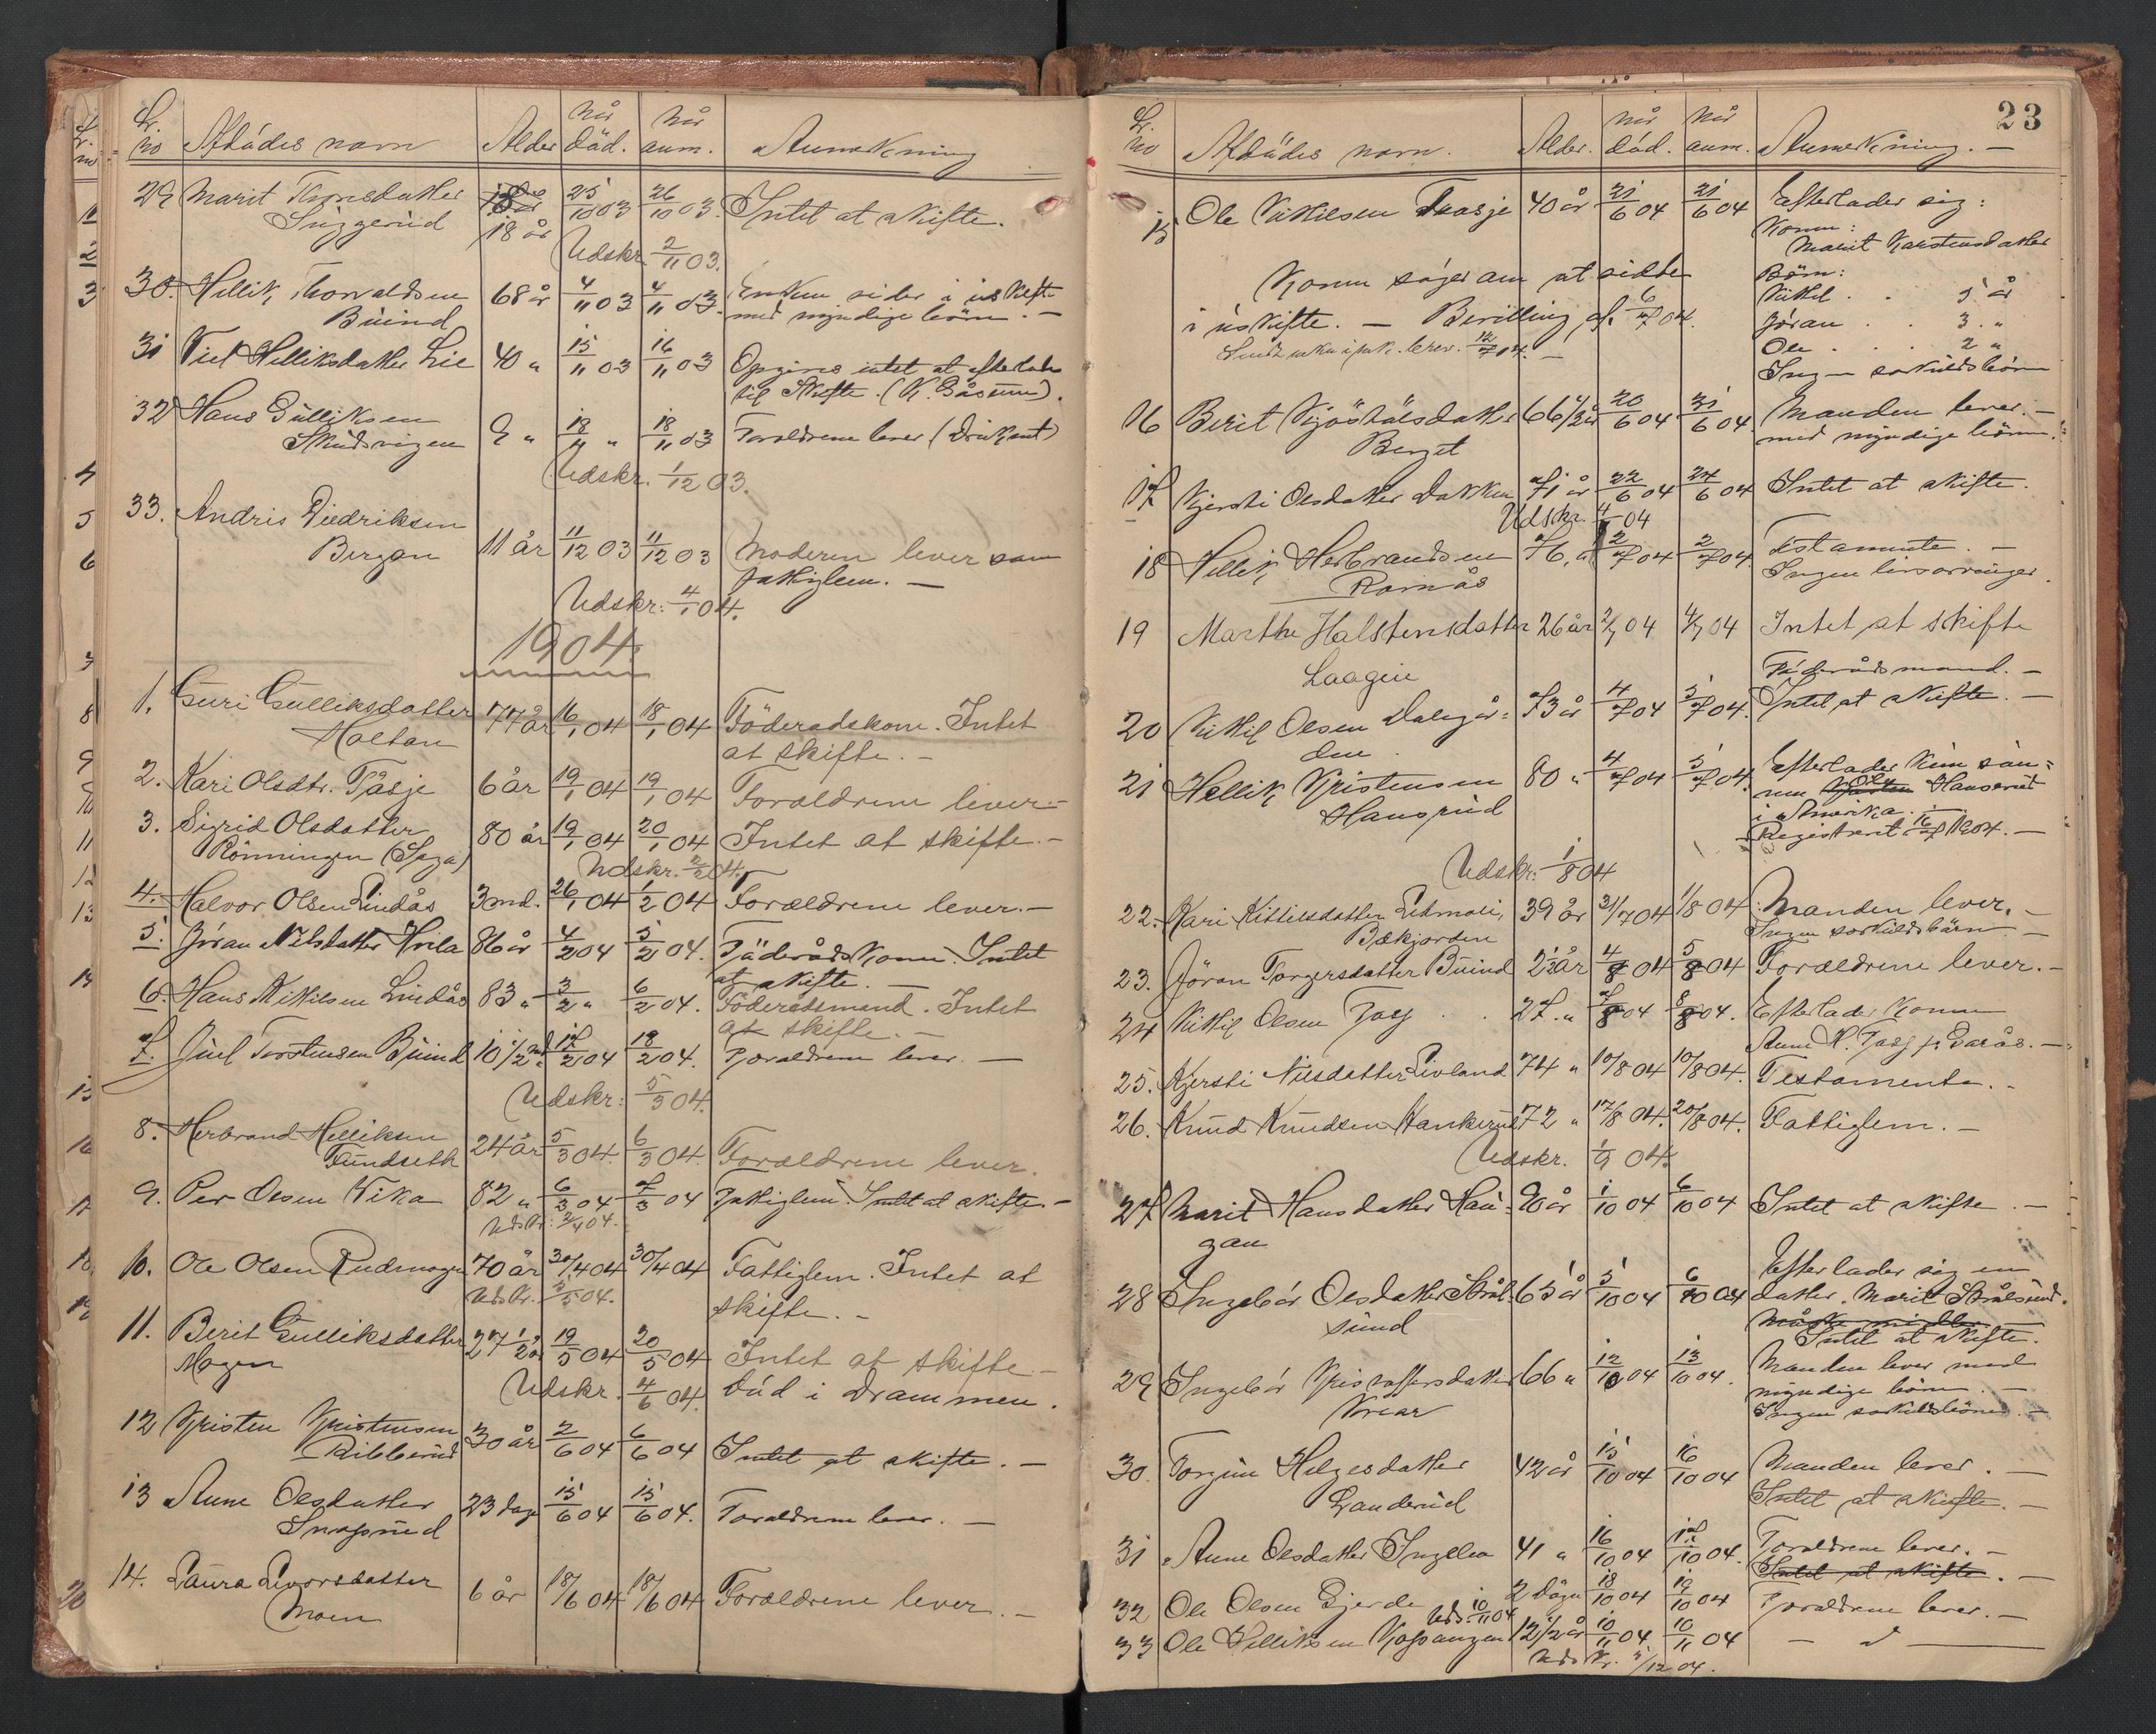 Lr. no Afdødes navn Alder når död. når anm. Anmerkning
29 Marit Tronsdatter 18 år 25/10 03 26/10 03. Intet at skifte.
Udskr. 2/11 03.
30. Hellik Thorvaldsen 68 år 4/11 03 4/11 03. Enken sider i uskifte
Buind med myndige börn. —
31 Helliksdatter Lie 40 " 15/11 03 16/11 03 Opgives intet at efterlade
til Skifte.
32 Hans Gulliksen 9 " 18/11 " 18/11 03 Forældrene lever (Druknet)
Skudsvigen
Udskr. 1/12 03.
33. Andris Diedriksen
Bergan 11 år 11/12 03 11/12 03 Moderen lever som
fattiglem. —
Udskr: 4/1 04.
1904.
1. Guri Gulliksdatter 77 år 16/1 04 18/1 04 Föderådskone. Intet
Holtan at skifte. —
2. Kari Olsdtr. Tåsje 6 år 19/1 04 19/1 04 Forældrene lever. —
3. Sigrid Olsdatter 80 år 19/1 04 20/1 04 Intet at skifte. —
Rönningen (Saga)
Udskr. 2/2 04.
4. Halvor Olsen Lindås 3 md. 26/1 04 1/2 04 Forældrene lever. —
5. Jöran Nilsdatter Hvila 86 år 4/2 04 5/2 04. Föderådskone. Intet
at skifte. —
6. Hans Kittilsen Lindås 83 " 3/2 " 6/2 04. Föderådsmand. Intet
at skifte. —
7. Juel Torstensen Buind 10 1/2 md 17/2 04 18/2 04. Forældrene lever. —
Udskr: 5/3 04.
8. Herbrand Helliksen 24 år 5/3 04. 6/3 04. Forældrene lever.
Fundseth
9. Per Olsen Vika 82 " 6/3 04 7/3 04 Fattiglem. Intet at skifte. —
Udskr: 2/4 04.
10. Ole Olsen Rudmogen 70 år 30/4 04 30/4 04 Fattiglem. Intet at
Udskr. 2/5 04. skifte. —
11. Berit Gulliksdatter 27 1/2 år 19/5 04 20/5 04 Intet at skifte. —
Mogen Udskr. 4/6 04. Död i Drammen.
12 Kristen Kristensen 30 år 2/6 04 6/6 04 Intet at skifte. —
Ribberud
13 Anne Olsdatter 23 dage 15/6 04 15/6 04. Forældrene lever. —
14. Laura Livorsdatter 6 år 18/6 04 18/6 04 Forældrene lever. —
Moen
23
Lr. no Afdødes navn. Alder. når död. når anm. Anmerkning. —
15 Ole Kittilsen Traasje 40 år 21/6 04 21/6 04 Efterlader sig:
Kone:
Marit Karstensdatter
Kone söger om at sidde Börn:
Kittil . . 5 år
i uskifte. — Bevilling af. 6/7 04. Jöran . . 3. "
12/7 04. — Ole . . . 2 "
Ingen særkuldsbörn
16 Berit Kjöstölsdatter 66 1/2 år 20/6 04 21/6 04 Manden lever. —
Berget med myndige börn.
17 Kjersti Olsdatter Dokken 71 år 22/6 04 24/6 04 Intet at skifte.
Udskr. 4/7 04
18 Hellik Herbrandsen 76 " 2/7 04 2/7 04. Testamente. —
Ramås Ingen livsarvinger.
19 Marthe Halstensdatter 26 år 2/7 04 4/7 04 Intet at skifte
Laagen Föderådsmand. —
20 Kittil Olsen Dalegår= 73 år 4/7 04 5/7 04. Intet at skifte. —
den.
21 Hellik Kristensen 80 " 4/7 04 5/7 04. Efterlader kun sön=
Hansrud nen Ole Hansrud
i Amerika. —
Registreret 16/7 1904. —
Udskr: 1/8 04
22. Kari Kittilsdatter 39 år 31/7 04 1/8 04. Manden lever. —
Bækjorden Ingen særkuldsbörn —
23. Jöran Torgersdatter Buind 2 1/2 år 4/8 04 5/8 04 Forældrene lever. —
24 Kittil Olsen Tasj . . 27. " 7/8 04 8/8 04. Efterlader Kone
25. Kjersti Nilsdatter Livland 74 " 10/8 04 10/8 04. Testamente. —
26. Knud Knudsen Hankerud 72 " 17/8 04. 20/8 04. Fattiglem. —
Udskr. 1/9 04.
27 Marit Hansdatter Hau= 90 år 1/10 04 6/10 04 Intet at skifte. —
gan
28 Ingebör Olsdatter Strål= 65 år 5/10 04 6/10 04 Efterlader sig en
sund datter, Marit Strålsund.
Intet at skifte.
29 Ingebör Kristoffersdatter 66 " 12/10 04 13/10 04. Manden lever med
myndige börn. —
Ingen særkuldsbörn. —
30. Torgun Helgesdatter 42 år 15/10 04 16/10 04 Manden lever. —
Landerud Intet at skifte. —
31 Anne Olsdatter Ingolea 41 " 16/10 04 17/10 04. Forældrene lever. —
Intet at skifte. —
32 Ole Olsen Gjerde 2 Dögn 18/10 04 19/10 04 Forældrene lever. —
Uds. 10/11 04
33 Ole Helliksen 12 1/2 år 10/11 04. 10/11 04 — " —
Udskr. 5/12 04.